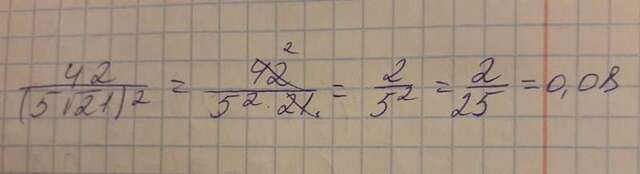 42/(5√21)² = 42/(5²·21) 2 = 2/5² = 2/25 = 0,08